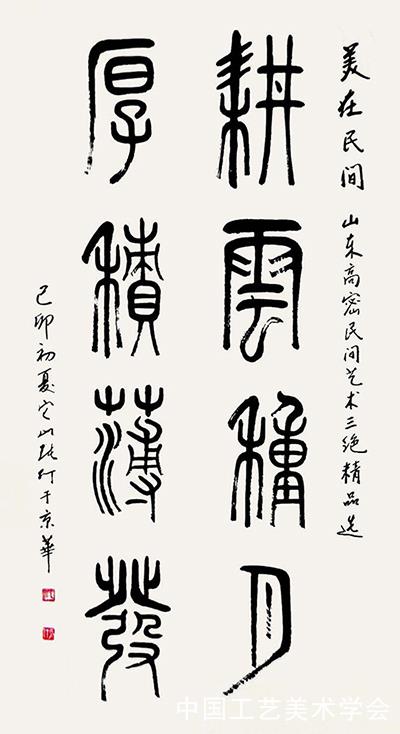 美在民间 山东高密民间艺术三绝精品选
耕雲種月
厚積薄發
己卯初夏它山张仃于京華
中国工艺美术学会